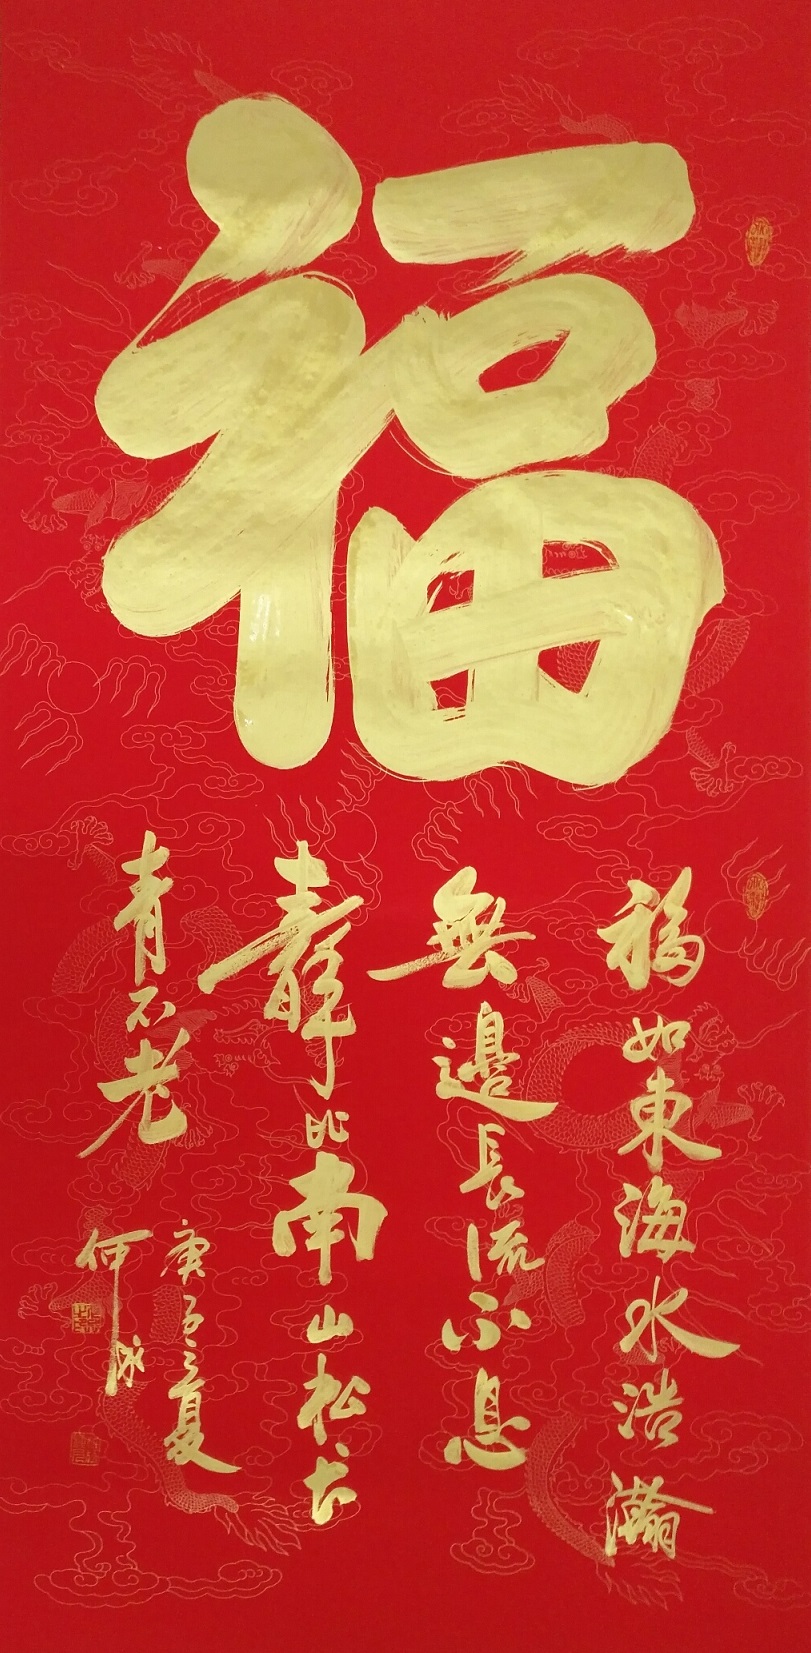 福
福如東海水浩瀚
無邊長流不息
壽比南山松长
青不老
庚子之夏
何